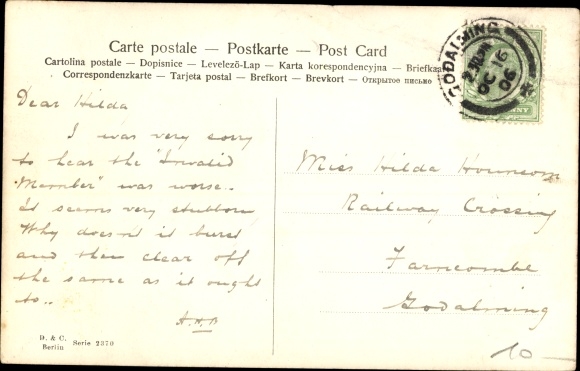 Carte postale — Postkarte — Post Card
Cartolina postale — Dopisnice — Levelező-Lap — Karta korespondencyjna — Briefkaart
Correspondenzkarte — Tarjeta postal — Brefkort — Brevkort — Открытое письмо
GODALMING
OC 16
06
Dear Hilda
I was very sorry
to hear the "Invalid
Member" was worse..
it seems very stubborn
Why doesn't it burst
and then clear off
the same as it ought
to..
A.A.B
Miss Hilda Hounsom
Railway Crossing
Farncombe
Godalming
10
D. & C.
Berlin Serie 2370